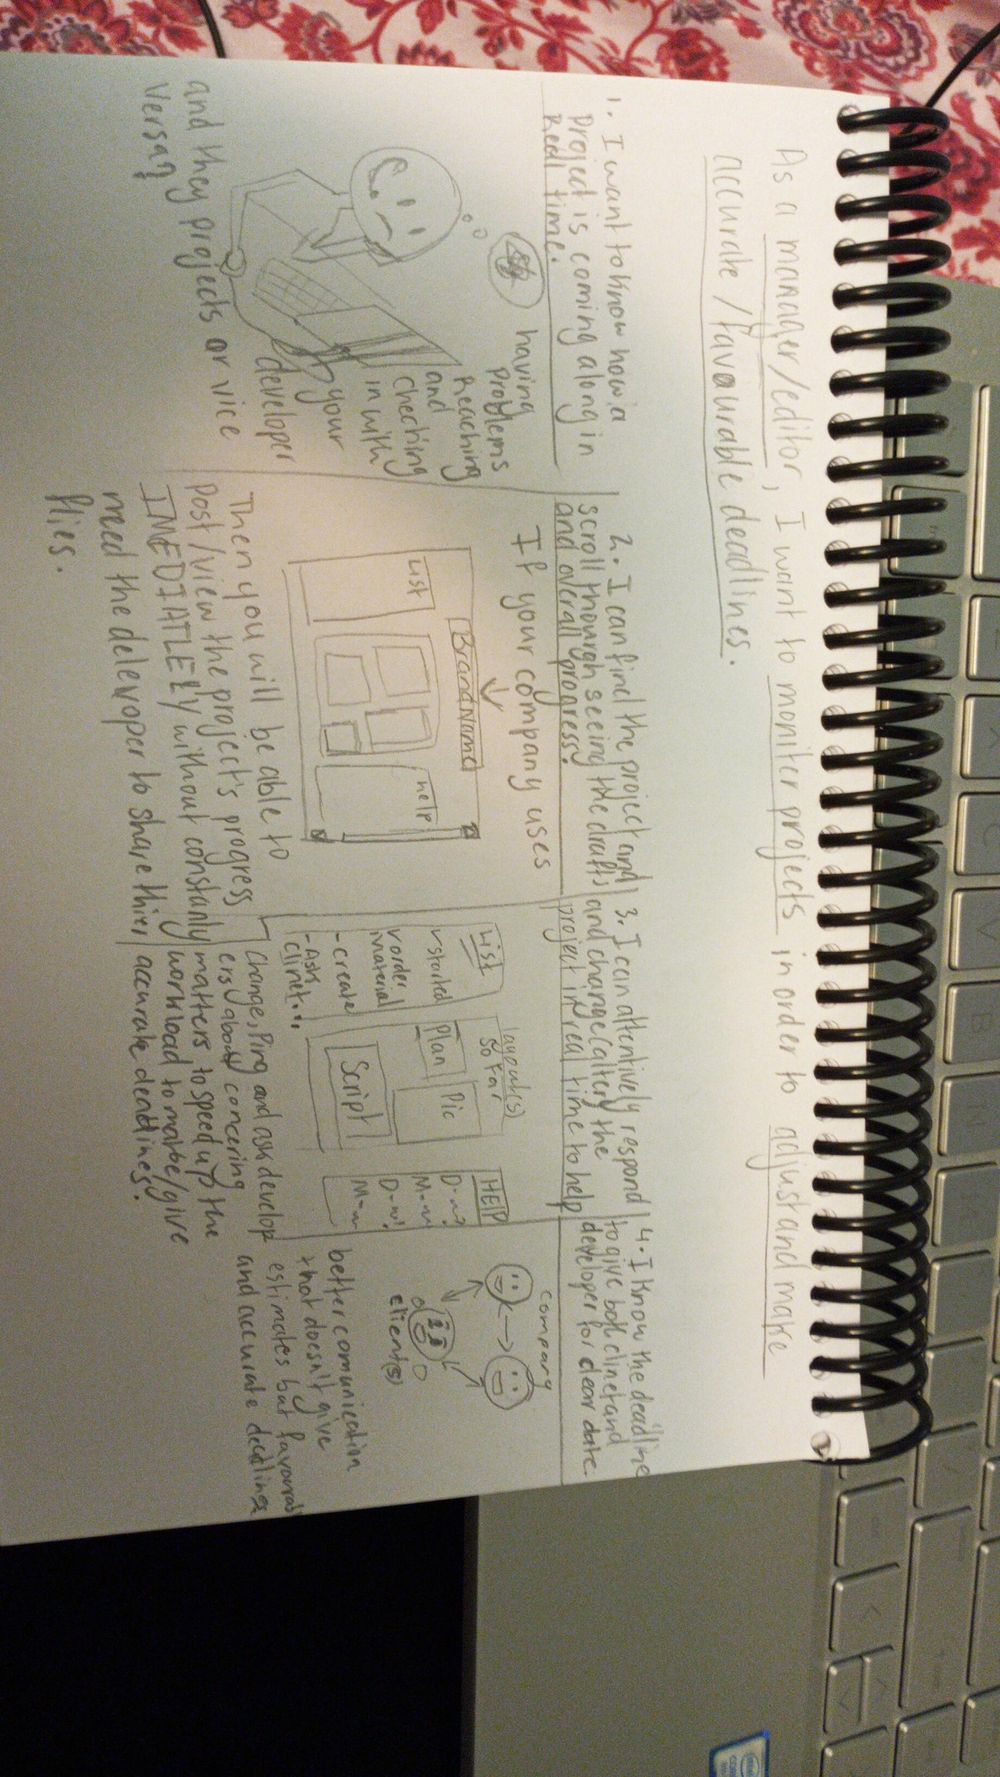 As a manager/editor, I want to moniter projects in order to adjust and make
accurate/favaurable deadlines.
1. I want to know how a
project is coming along in
Real time.
having
problems
Reaching
and
checking
in with
your
developer
and they projects or vice
versa?
2. I can find the project and
scroll though seeing the drafts
and overall progress!
If your company uses
BrandName
List
help
Then you will be able to
Post/view the project's progress
IMEDIATLEly without constanly
need the delevoper to share thier
flies.
3. I can attentively respond
and change(alter) the
project in real time to help
List
started
order
material
-create
-Ask
clinet...
layout(s)
so far
Plan
Pic
Script
HELP
D-~?
M-~!
D-~!
M-~
Change, Ping and ask develop
ers about concering
matters to speed up the
workload to make/give
accurate deadlines!
4. I know the deadline
to give both clinet and
developer for clear date.
company
client(s)
better comunication
that doesn't give
estimates but favourabl
and accurate deadlines